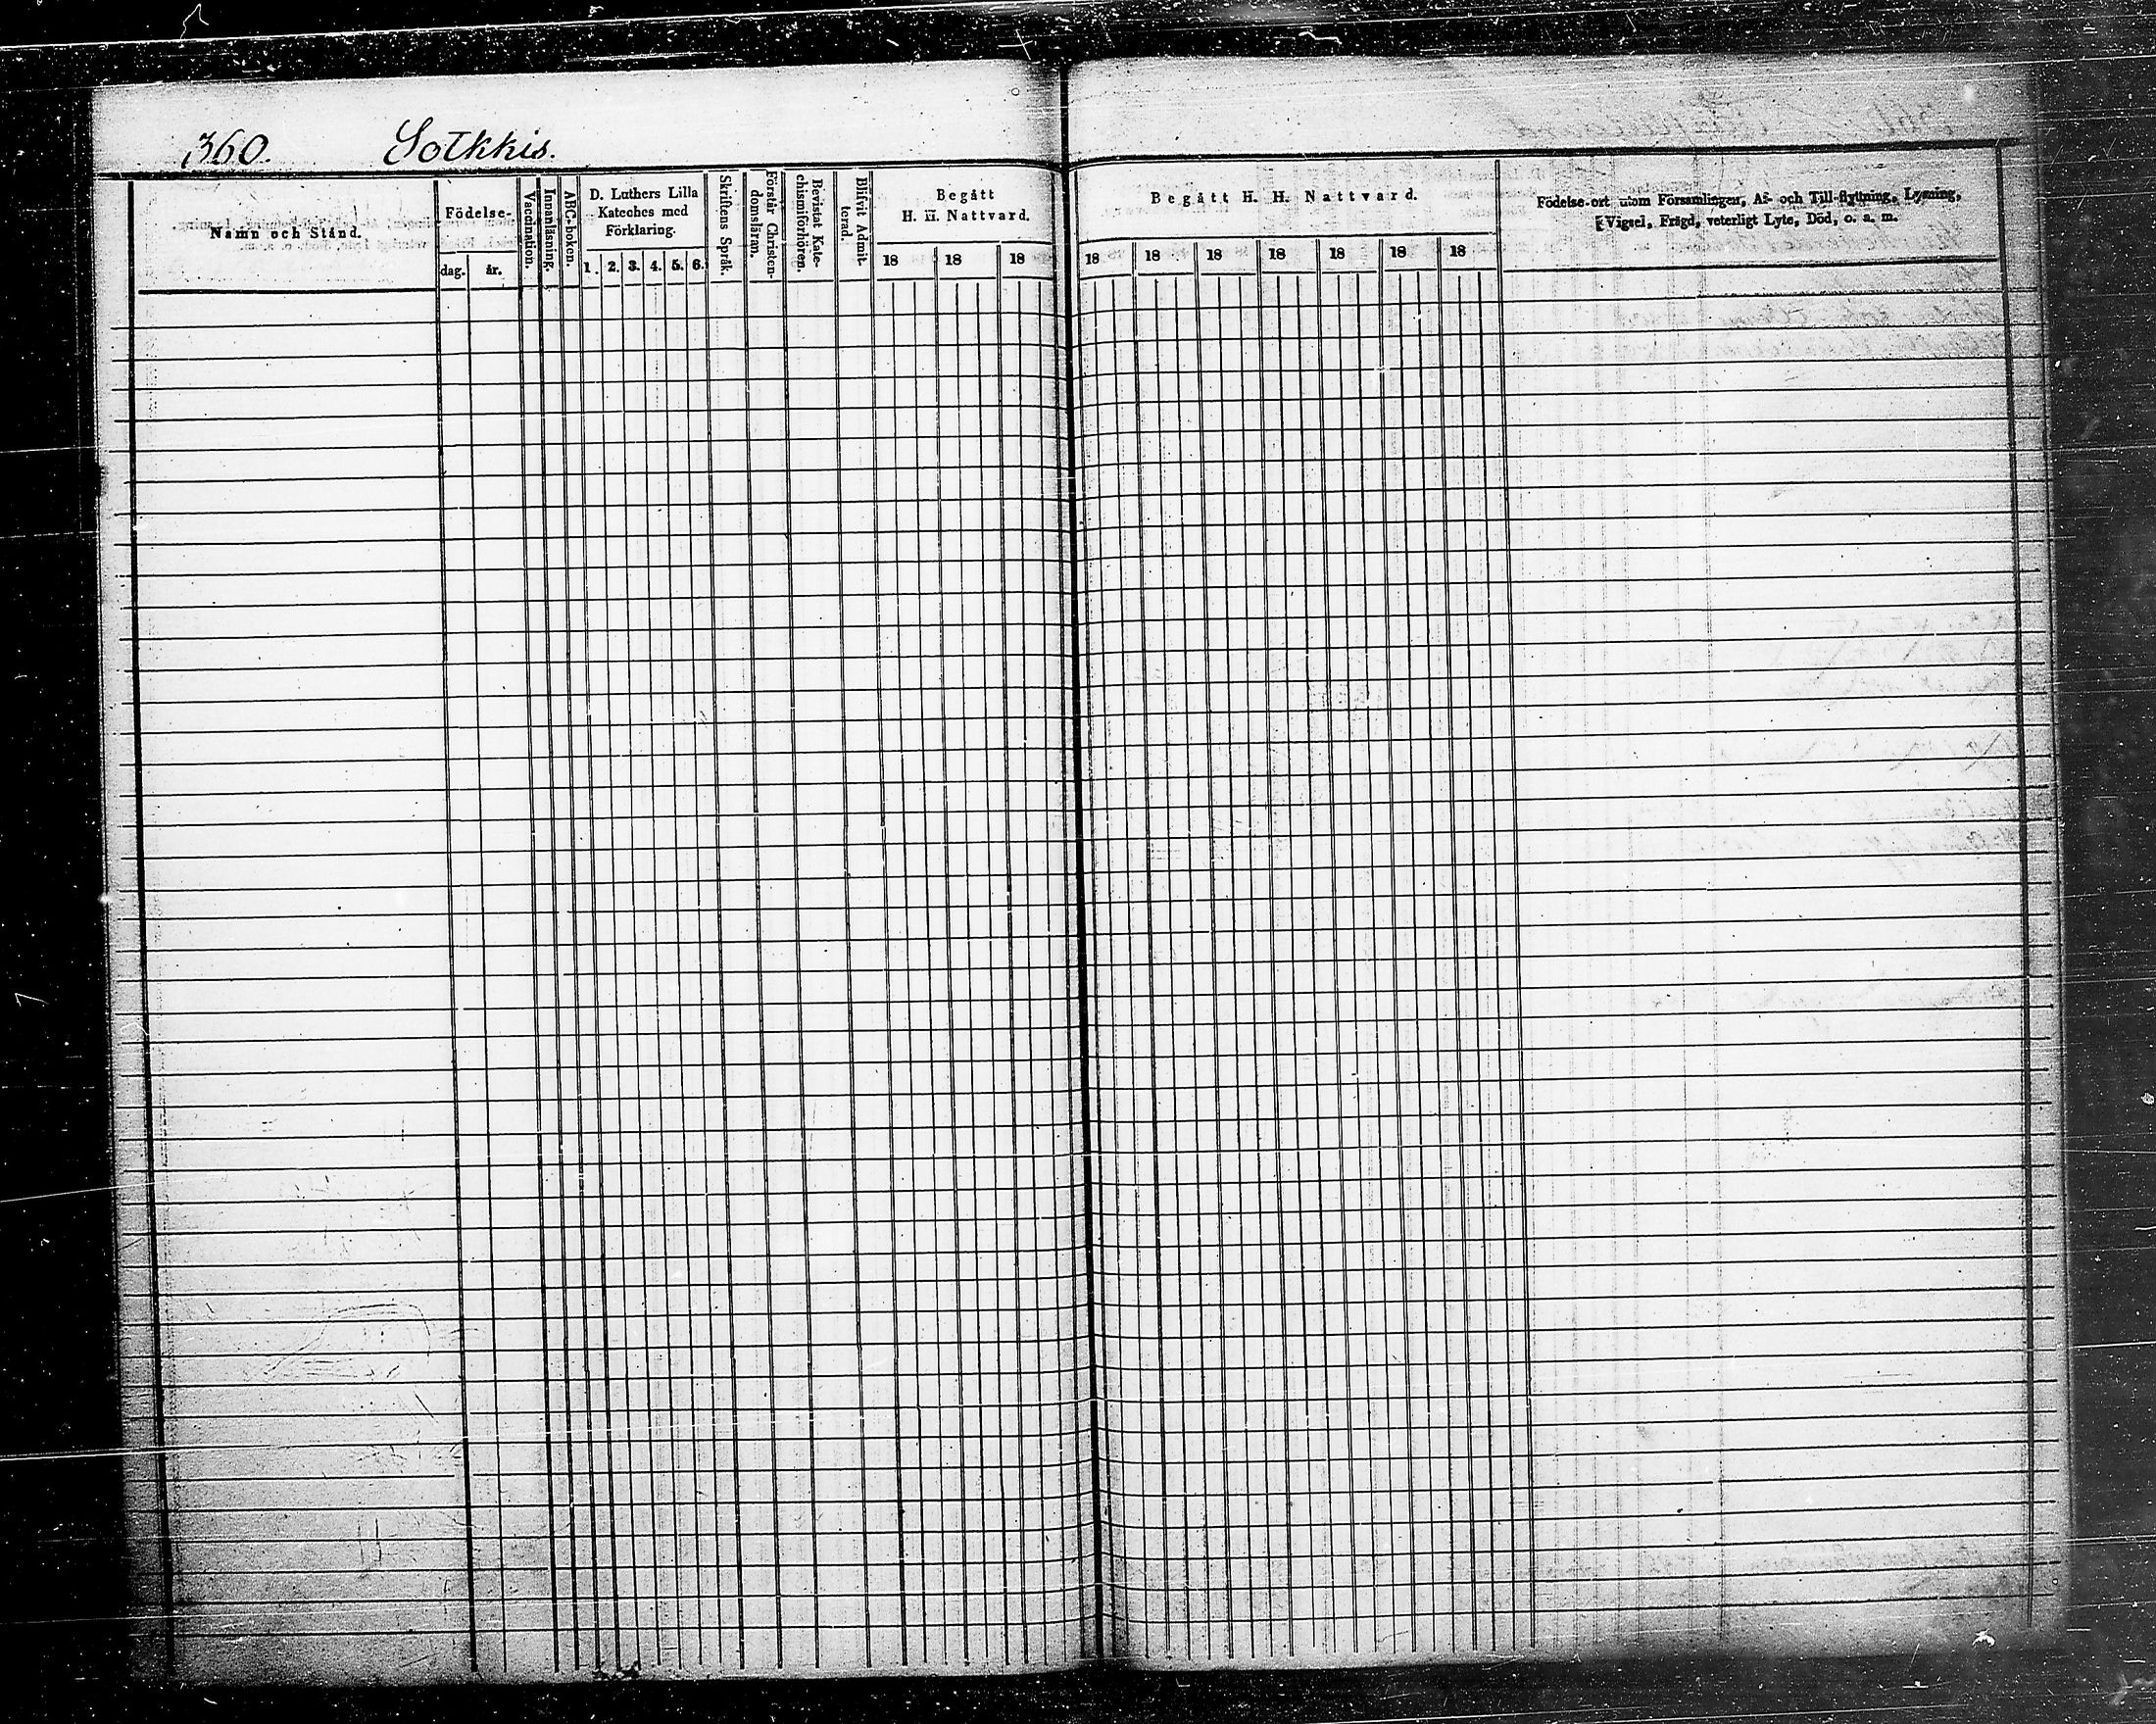 360. Sotkkis.
Namn och Stånd.
Födelse-
dag. år.
Vaccination.
Innanläsning.
ABC-boken.
D. Luthers Lilla
Kateches med
Förklaring.
1. 2. 3. 4. 5. 6.
Skriftens Språk.
Förstår Christen-
domsläran.
Bevistat Kate-
chismiförhören.
Blifvit Admit-
terad.
Begått
H. H. Nattvard.
18 18 18
Begått H. H. Nattvard.
18 18 18 18 18 18 18
Födelse-ort utom Församlingen, Af- och Till-flyttning, Lysning,
Vigsel, Frägd, veterligt Lyte, Död, o. s. m.